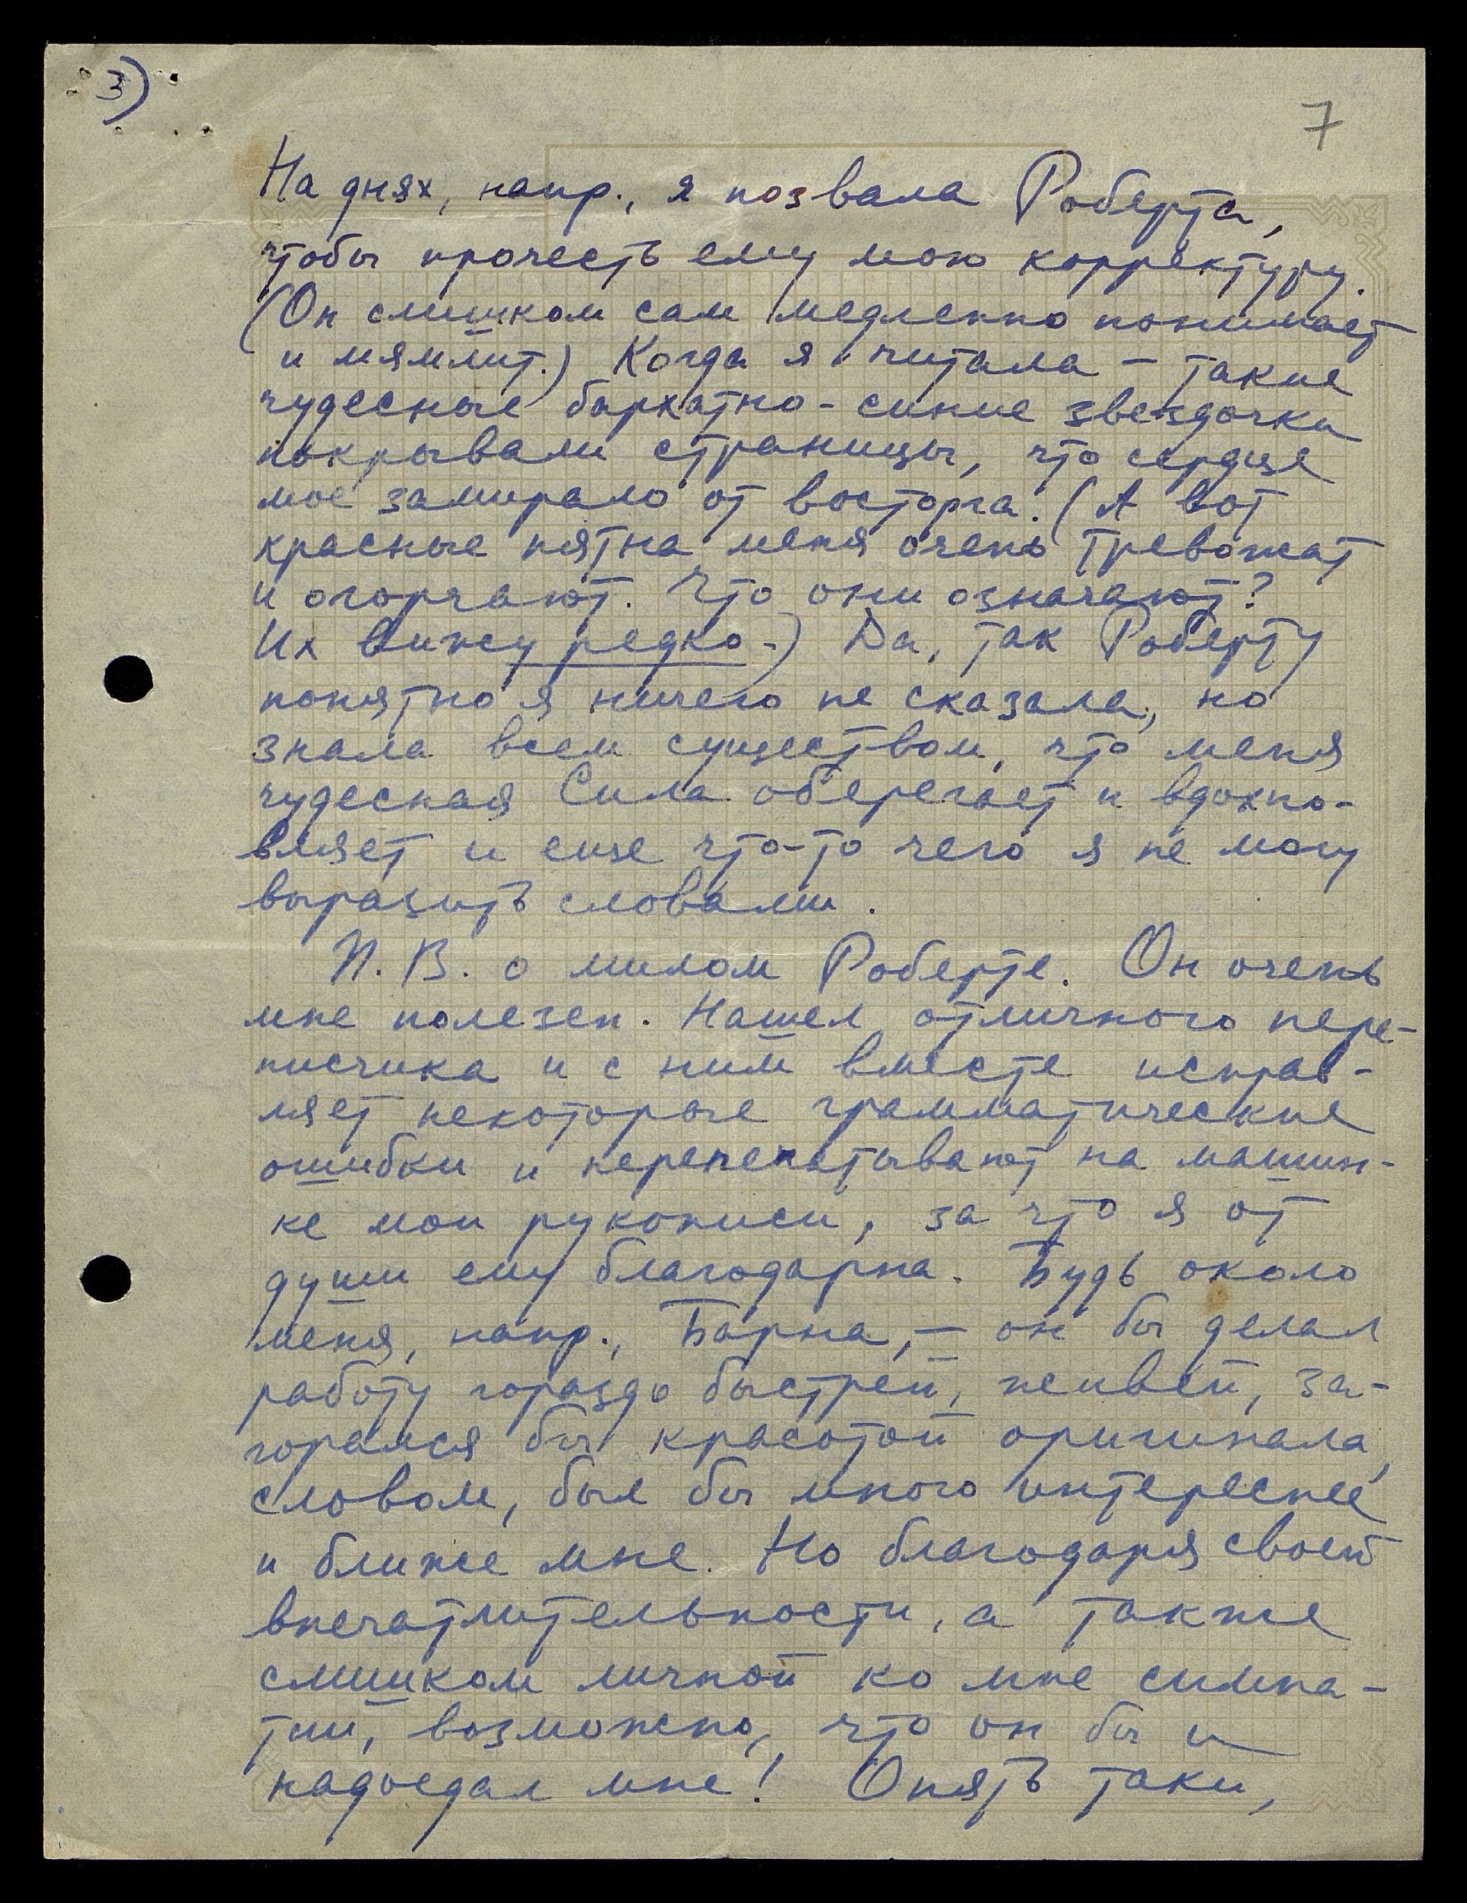 3)
7
На днях, напр., я позвала Роберта,
чтобы прочесть ему мою корректуру.
(Он слишком сам медленно понимает
и мямлит.) Когда я читала – такие
чудесные бархатно-синие звездочки
покрывали страницы, что сердце
мое замирало от восторга. (А вот
красные пятна меня очень тревожат
и огорчают. Что они означают?
Их вижу редко.) Да, так Роберту
понятно я ничего не сказала, но
знала всем существом, что меня
чудесная Сила оберегает и вдохно-
вляет и еще что-то чего я не могу
выразить словами.
П. В. о милом Роберте. Он очень
мне полезен. Нашел отличного пере-
писчика и с ним вместе исправ-
ляет некоторые грамматические
ошибки и перепечатывают на машин-
ке мои рукописи, за что я от
души ему благодарна. Будь около
меня, напр., Барна, – он бы делал
работу гораздо быстрей, живей, за-
горался бы красотой оригинала,
словом, был бы много интереснее
и ближе мне. Но благодаря своей
впечатлительности, а также
слишком личной ко мне симпа-
тии, возможно, что он бы и
надоедал мне! Опять таки,